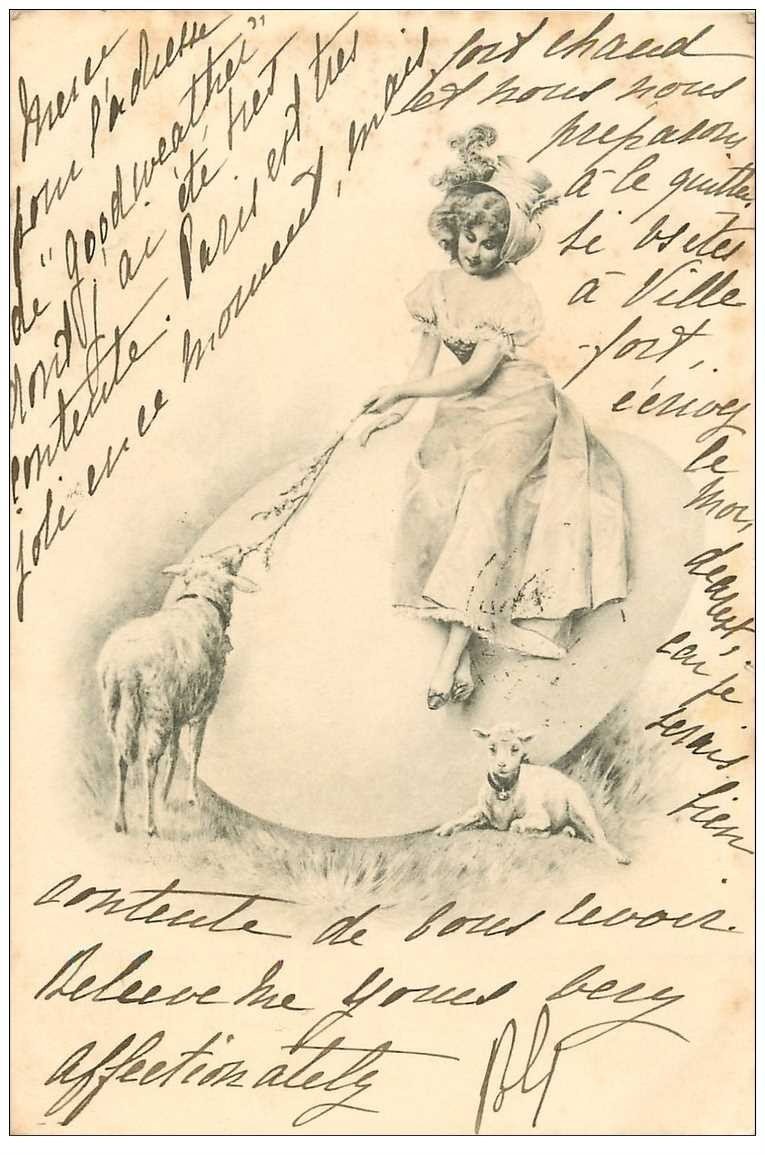 Merci
pour l'adresse
de "good weather"
dont j'ai été très
contente. Paris est très
joli en ce moment, mais
fort chaud
et nous nous
préparons
à le quitter
si vsites
à Ville
fort,
écrivez
le
moi,
dearest,
car je
serais
bien
contente de vous revoir.
Believe me yours very
affectionately